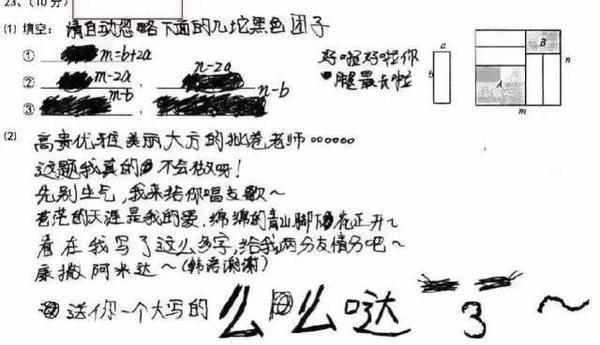 23、(10分)
(1) 填空： 请自动忽略下面的几坨黑色团子
① m=b+2a
② m-2a , n-2a
③ m-b , n-b
好啦好啦你
腿最长啦
a
b
A
B
m
n
(2) 高贵优雅美丽大方的批卷老师。。。。。。
这题我真的不会做呀！
先别生气，我来给你唱支歌～
苍茫的天涯是我的爱，绵绵的青山脚下花正开～
看在我写了这么多字，给我两分友情分吧～
康撒阿米达～(韩语谢谢)
送你一个大写的 么么哒 3 ～